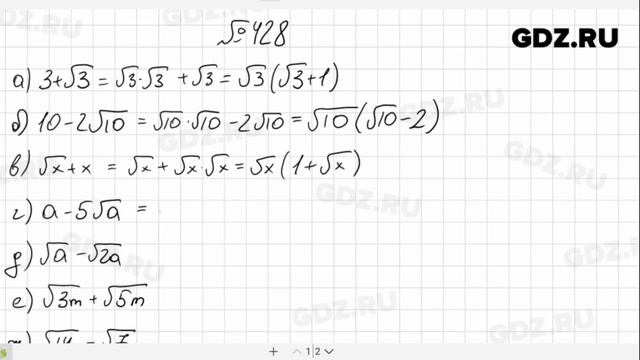 №428
GDZ.RU
а) 3+√3 = √3·√3 +√3 = √3(√3+1)
б) 10-2√10 = √10·√10 -2√10 = √10(√10-2)
в) √x+x = √x+√x·√x = √x(1+√x)
г) a-5√a =
д) √a -√2a
е) √3m +√5m
ж) √14 - √7
1 2